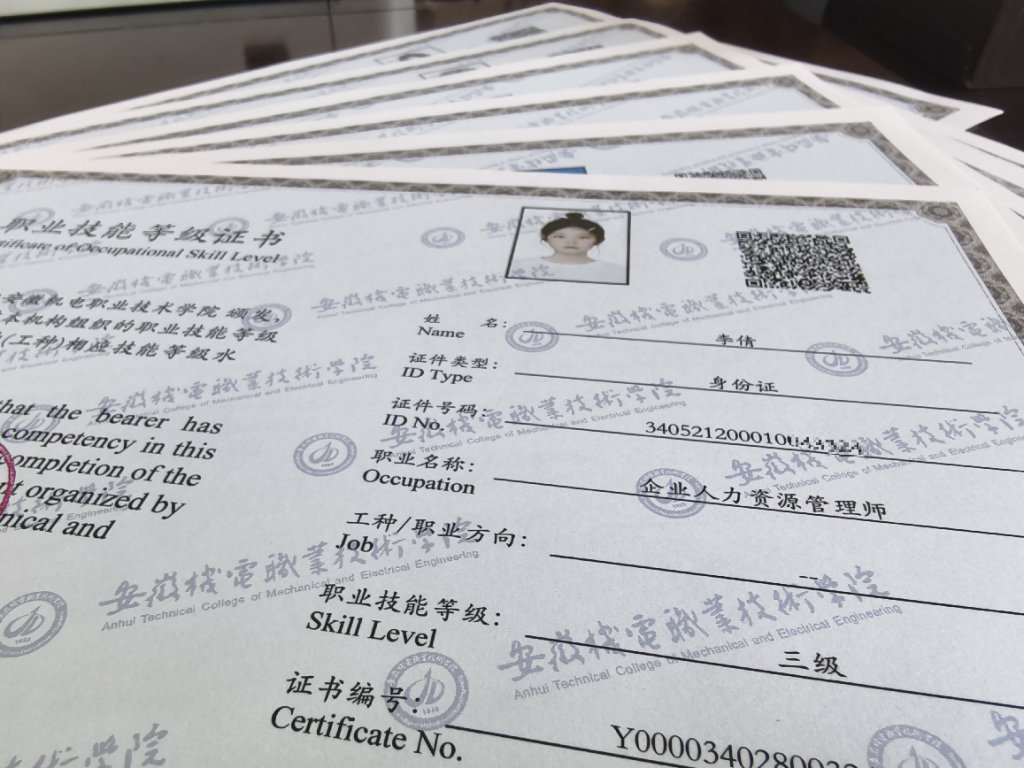 职业技能等级证书
tificate of Occupational Skill Level
安徽机电职业技术学院 颁发,
本机构组织的职业技能等级
(工种)相应技能等级水
that the bearer has
competency in this
ompletion of the
nt organized by
nical and
姓 名:
Name
李倩
证件类型:
ID Type
身份证
证件号码:
ID No.
340521200010
职业名称:
Occupation
企业人力资源管理师
工种/职业方向:
Job
--
职业技能等级:
Skill Level
三级
证书编号:
Certificate No.
Y0000340280
安徽機電職業技術學院
Anhui Technical College of Mechanical and Electrical Engineering